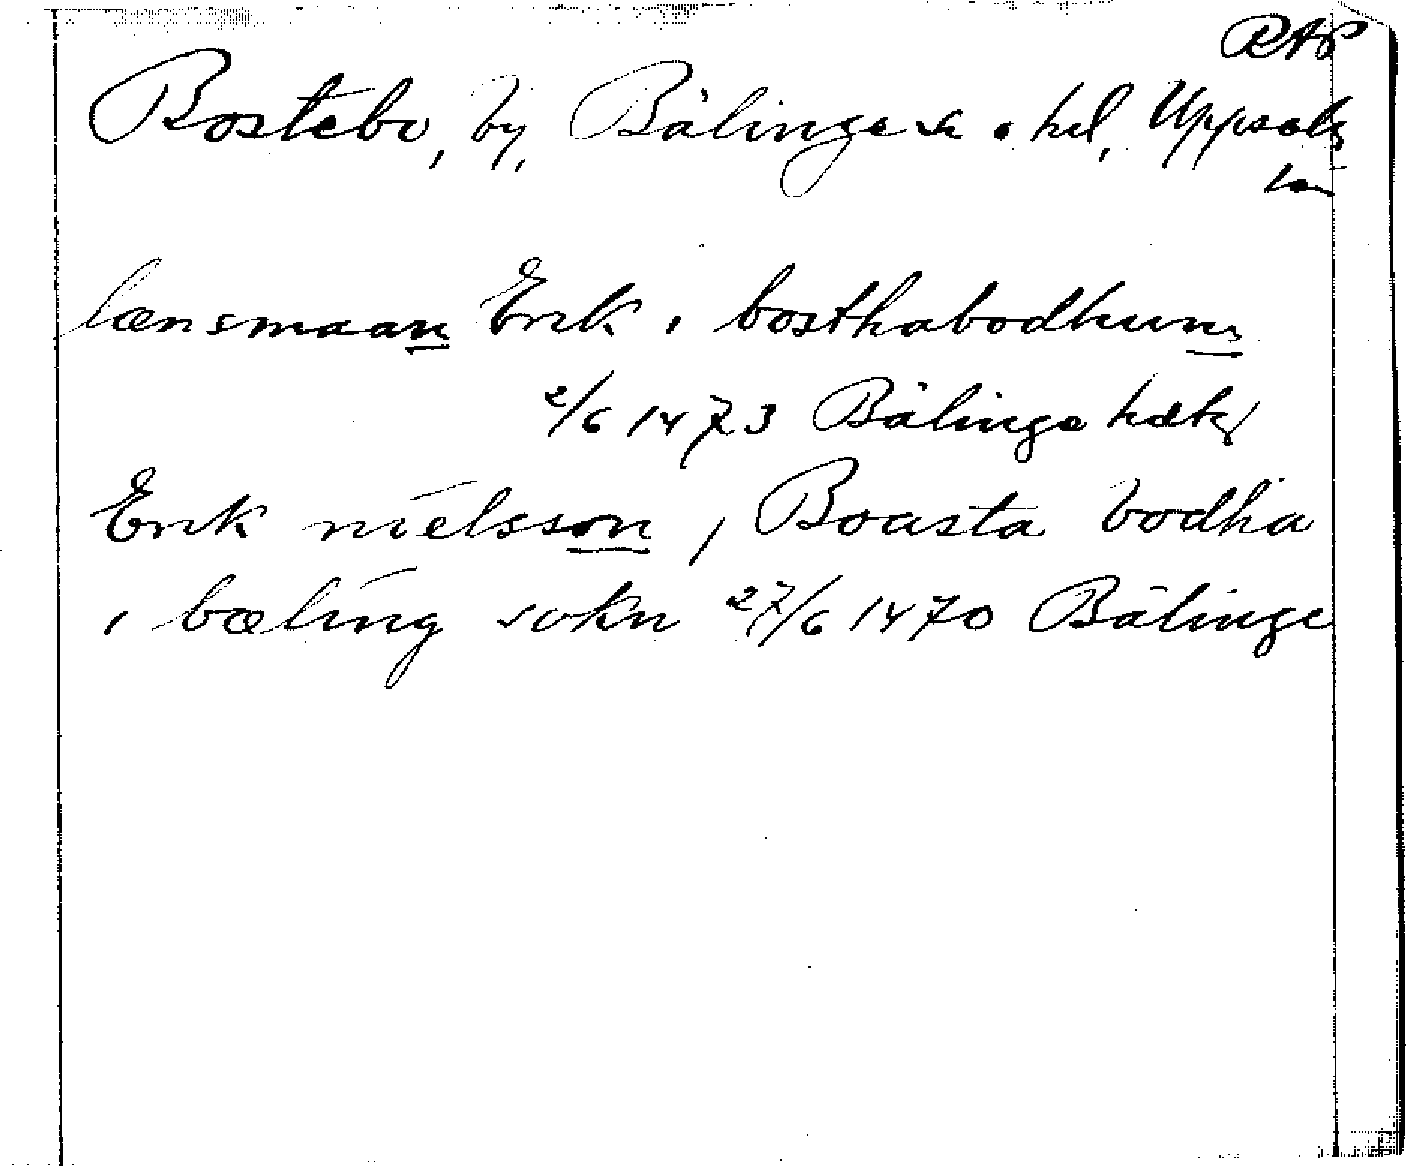 RAP
Bostebo, by, Bälinge sn o. hd, Uppsala
län
lænsmaan Erik i bosthabodhum
2/6 1473 Bälinge hd
Erik nielsson i Boasta bodha
i bæling sokn 27/6 1470 Bälinge